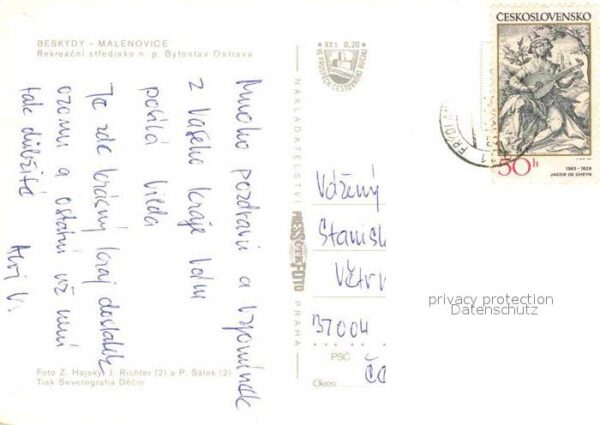 BESKYDY – MALENOVICE
Rekreační středisko n. p. Bytostav Ostrava
Mnoho pozdravů a vzpomínek
z Vašeho kraje Vám
posílá Vilda
Je zde krásný kraj dostatek
ozonu a ostatní už není
tak důležité
Ahoj V.
Foto Z. Hajský, J. Richter (2) a P. Sálek (2)
Tisk Severografia Děčín
KčI 0,20
VE PROSPĚCH CESTOVNÍHO RUCHU
NAKLADATELSTVÍ
PRESSFOTO
PRAHA
ČESKOSLOVENSKO
50 h
1565 - 1629
JACOB DE GHEYN
Vážený
Stanisl
Větrn
37004
PSČ
Okres:
privacy protection
Datenschutz